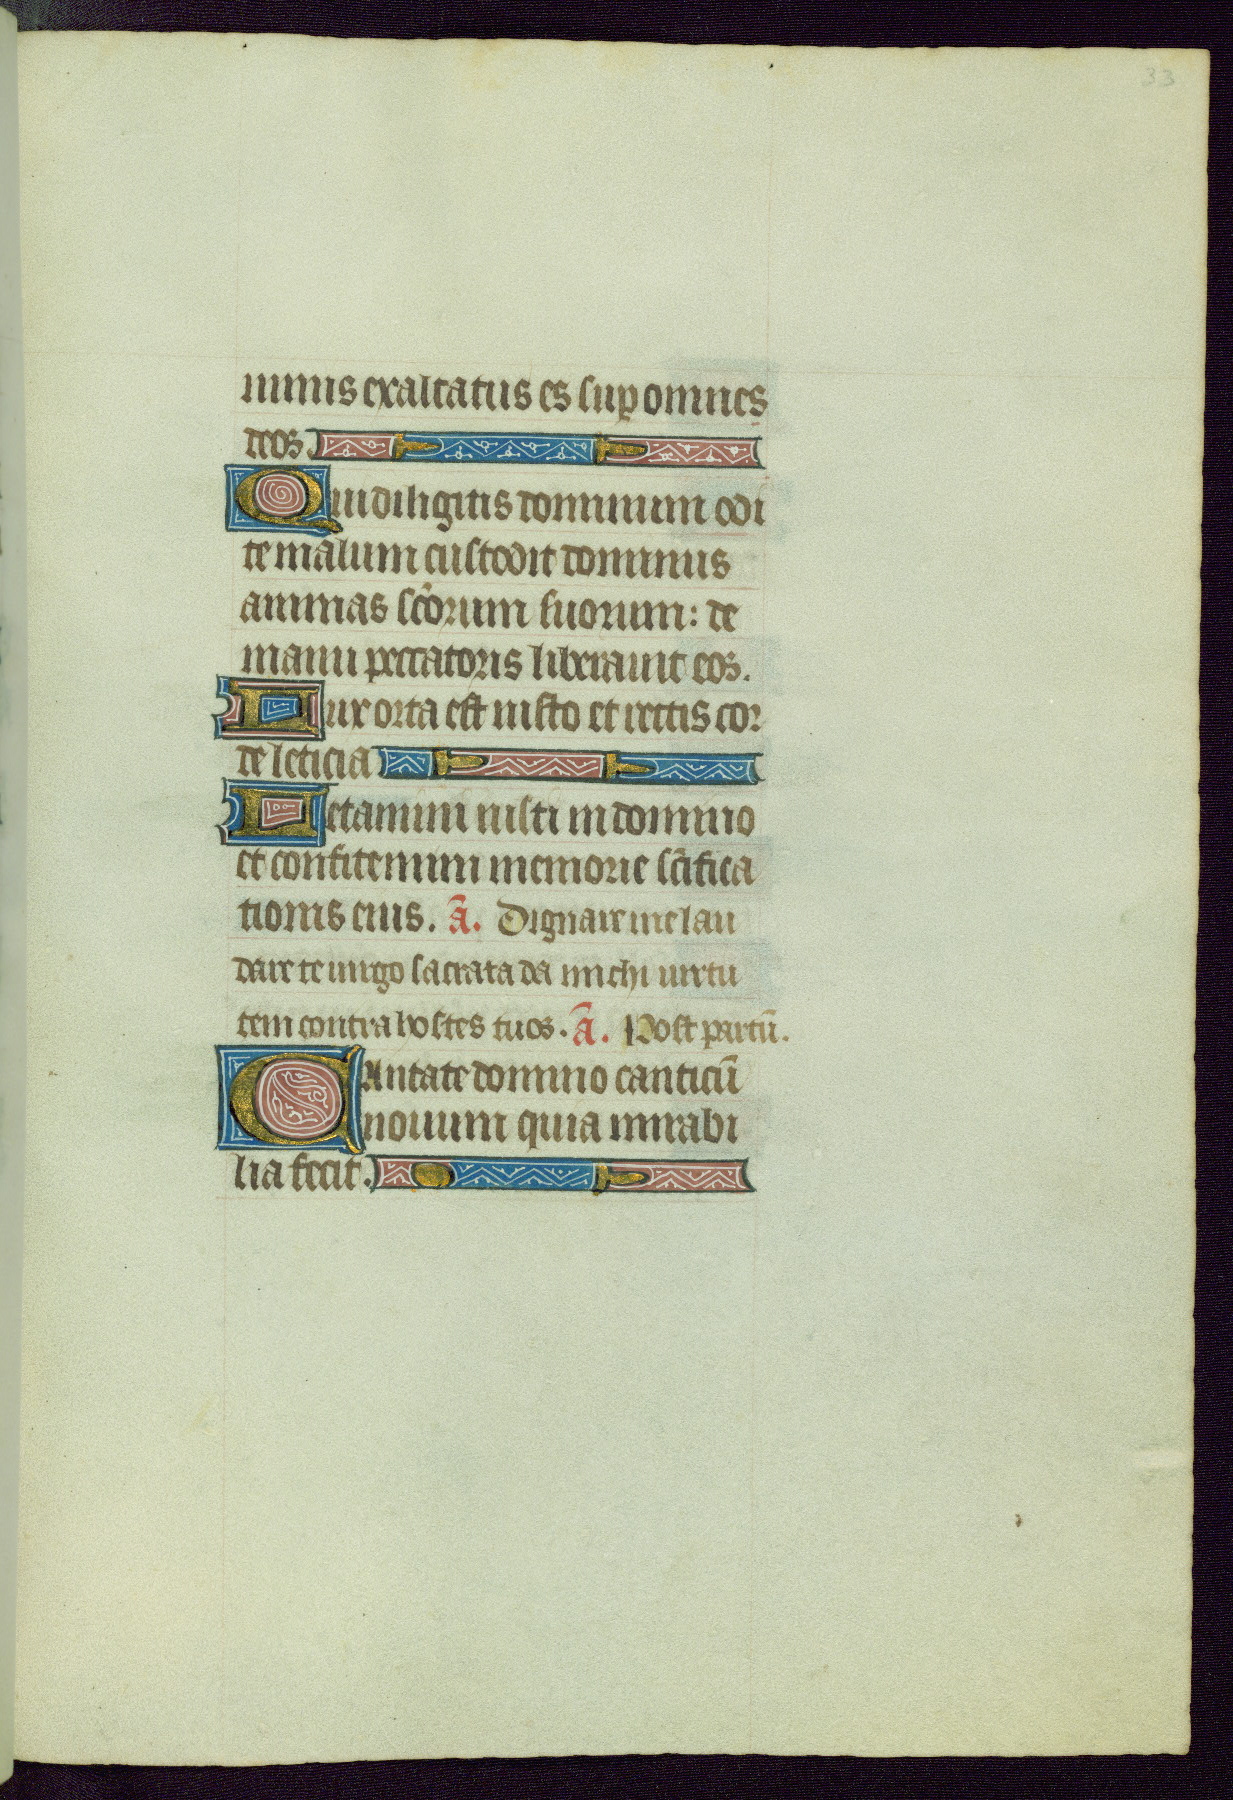 33
nimis exaltatus es sup omnes
deos.
Qui diligitis dominum odi
te malum custodit dominus
animas scorum suorum: de
manu peccatoris liberauit eos.
Lux orta est iusto et rectis cor
de leticia
Letamini iusti in domino
et confitemini memorie scifica
tionis eius. A. Dignare me lau
dare te uirgo sacrata da michi uirtu
tem contra hostes tuos. A. Post partū.
Cantate domino canticū
nouum quia mirabi
lia fecit.